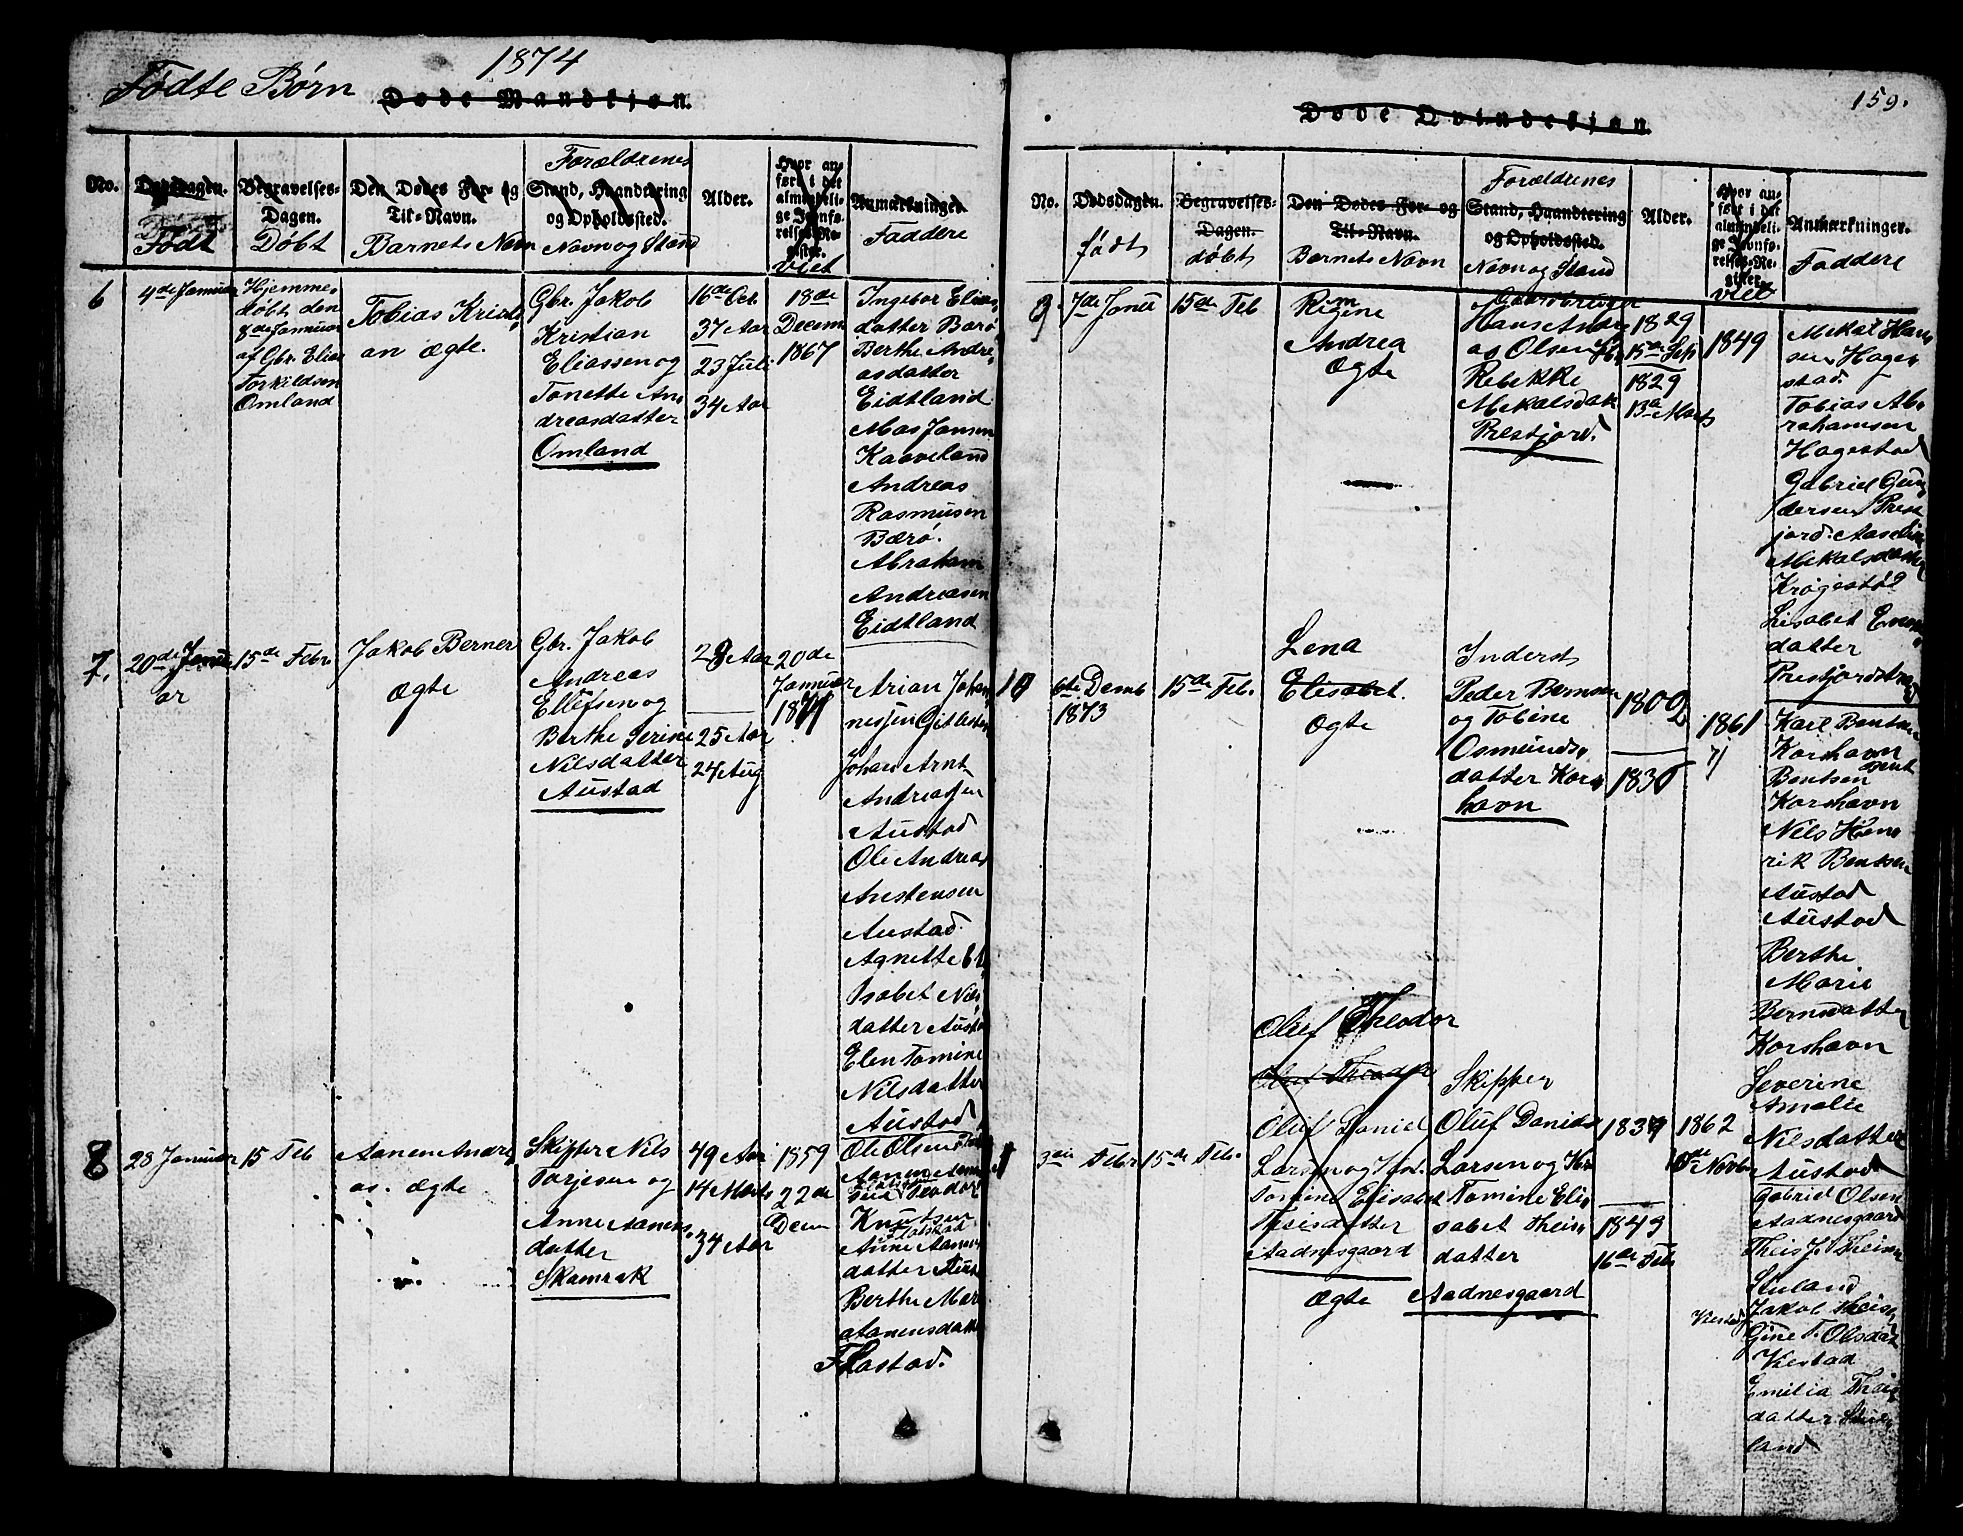 1874
Fødte Børn
Døde Mandkjøn.
No.
Dødsdagen.
Født
Begravelses-
Dagen.
Døbt
Den Dødes For- og
Til-Navn.
Barnets Navn
Forældrenes
Stand, Haandtering
og Opholdssted.
Navn og Stand
Alder.
Hvor an-
ført i det
almindeli-
ge Jevnfø-
relses-Re-
gister.
viet
Anmærkninger.
Faddere
6
4de Januar
Hjemme-
døbt den
8de Januar
af Gbr. Elias
Torkildsen
Omland
Tobias Kristi-
an ægte.
Gbr. Jakob
Kristian
Eliassen og
Tonette An-
dreasdatter
Omland
16de Oct
37 Aar
23 Juli
34 Aar
18de
Decem
1867
Ingebor Elias-
datter Barø
Berthe Andre-
asdatter
Eidtland
Mas Jansen
Kaaveland
Andreas
Rasmusen
Bærø.
Abraham
Andreasen
Eidtland
7.
20de Janu-
ar
15de Febr.
Jakob Berner
Ægte
Gbr. Jakob
Andreas
Ellefsen og
Berthe Serine
Nilsdatter
Austad
28 Aar
25 Aar
24 Aug
20de
Januar
1871
Arian Johan-
nessen
Johan Arnt
Andreassen
Austad
Ole Andreas
Anstensen
Austad.
Agnette El-
isabet Nils-
datter Austad
Elen Tomine
Nilsdatter
Austad
8
28 Januar
15 Feb
Aanen Andre-
as. ægte
Skipper Nils
Torjesen og
Anne Aanens-
datter
Skamrak
49 Aar
14 Marts
34 Aar
1859
22de
Decm
Ole Olsen
Teodor
Knutsen
Anne Aanens-
datter
Berthe Mar
Aanensdatt
Flastad.
159.
Døde Qvindekjøn.
No.
Dødsdagen.
født
Begravelses-
Dagen.
døbt
Den Dødes For- og
Til-Navn.
Barnets Navn
Forældrenes
Stand, Haandtering
og Opholdssted.
Navn og Stand
Alder.
Hvor an-
ført i det
almindeli-
ge Jevnfø-
relses-Re-
gister.
viet
Anmærkninger.
Faddere
9
7de Janu
15de Feb
Rigine
Andrea
Ægte
Gaardbruger
Hans Andre-
as Olsen og
Rebekke
Mekalsdatt
Prestjord.
1829
15de Feb
1829
13de Marts
1849
Mekal Han-
sen Hage-
stad.
Tobias Ab-
rahamsen
Hagestad
Gabriel Gun-
dersen Prest-
jord. Aaseline
Mekalsdatter
Krøgestød
Lisabet Even-
datter
Prestjordstrand
10
6te Decmb
1873
15de Feb.
Lena
Elisabet.
Ægte
Inderst
Peder Bernsen
og Tobine
Osmunds-
datter Kors-
havn
1802
1835
1861
Karl Bentsen
Korshavn
Bentsen
Korshavn
Nils Hen-
rik Bentsen
Austad
Austad
Berthe
Marie
Berntdatter
Korshavn
Severine
Amalie
Nilsdatter
Austad
11
3die Febr
15de Feb.
Oluf Theodor
Oluf Theodor
Oluf Daniel
Larsen og
Tomine Elisabet
Theisdatter
Aadnesgaard
Ægte
Skipper
Oluf Daniel
Larsen og
Tomine Eli-
sabet Theis-
datter
Aadnesgaard
1837
1849
16de Feb
1862
Novbr
Gabriel Olsen
Aadnesgaard
Theis J. Theisen
Stuland
Jakob Theis
Gine T. Olsdat
Vrestad
Emilia Theis-
datter Stu-
land